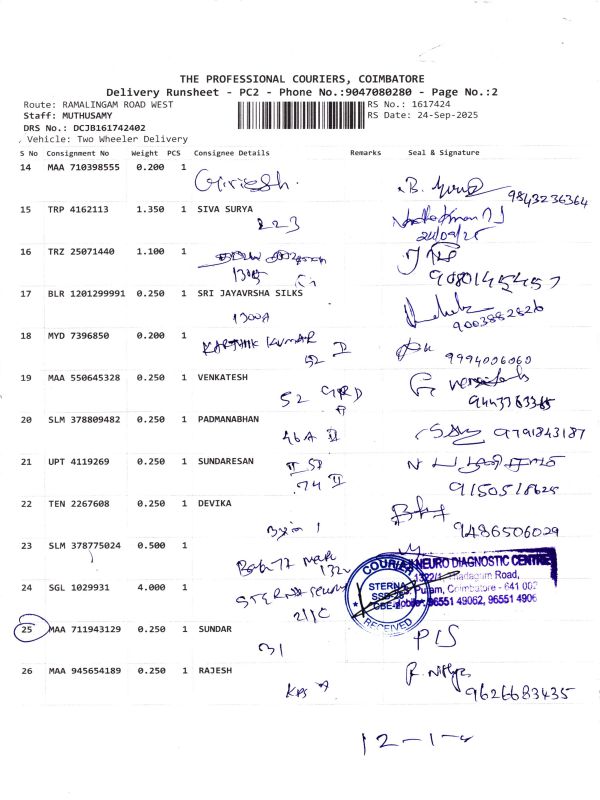 THE PROFESSIONAL COURIERS, COIMBATORE
Delivery Runsheet - PC2 - Phone No.:9047080280 - Page No.:2
Route: RAMALINGAM ROAD WEST RS No.: 1617424
Staff: MUTHUSAMY RS Date: 24-Sep-2025
DRS No.: DCJB161742402
Vehicle: Two Wheeler Delivery
S No Consignment No Weight PCS Consignee Details Remarks Seal & Signature
14 MAA 710398555 0.200 1 Girish. 9843236364
15 TRP 4162113 1.350 1 SIVA SURYA
223 24/09/25
16 TRZ 25071440 1.100 1
1305 9080145457
17 BLR 1201299991 0.250 1 SRI JAYAVRSHA SILKS
1300A 9003882826
18 MYD 7396850 0.200 1 KARTHIK KUMAR
52 II 9994006060
19 MAA 550645328 0.250 1 VENKATESH
52
20 SLM 378809482 0.250 1 PADMANABHAN
46A II 9791843187
21 UPT 4119269 0.250 1 SUNDARESAN
74 II 9150518625
22 TEN 2267608 0.250 1 DEVIKA
9486506029
23 SLM 378775024 0.500 1
NEURO DIAGNOSTIC CENTRE
Thadagam Road,
24 SGL 1029931 4.000 C
Puram, Coimbatore - 641 002
Mobile: 96551 49062, 96551 4906
211C
COURIER
STERNA
RECEIVED
25 MAA 711943129 0.250 1 SUNDAR
31 P/S
26 MAA 945654189 0.250 1 RAJESH
9626683435
12-1-